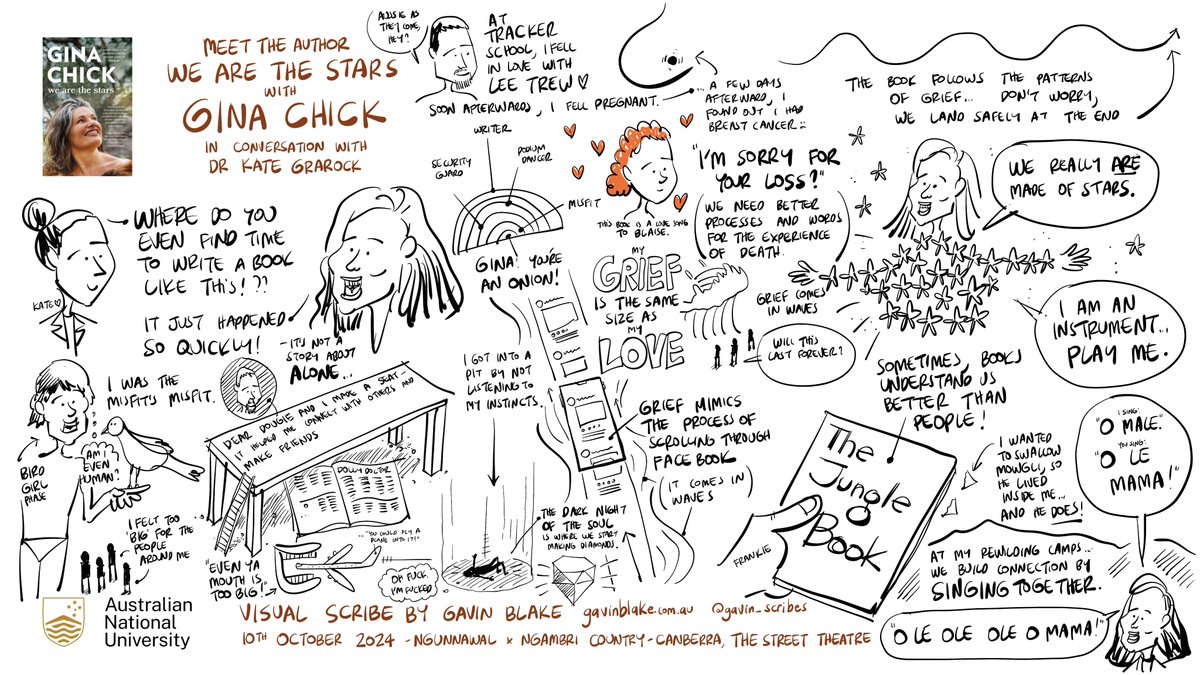 GINA
CHICK
we are the stars
MEET THE AUTHOR
WE ARE THE STARS
WITH
GINA CHICK
IN CONVERSATION WITH
DR KATE GRAROCK
AUSSIE AS
THEY COME,
HEY?
AT
TRACKER
SCHOOL, I FELL
IN LOVE WITH
LEE TREW
SOON AFTERWARDS, I FELL PREGNANT.
... A FEW DAYS
AFTERWARD, I
FOUND OUT I HAD
BREAST CANCER
THE BOOK FOLLOWS THE PATTERNS
OF GRIEF... DON'T WORRY,
WE LAND SAFELY AT THE END
WHERE DO YOU
EVEN FIND TIME
TO WRITE A BOOK
LIKE THIS!??
KATE
IT JUST HAPPENED
SO QUICKLY!
WRITER
SECURITY
GUARD
PODIUM
DANCER
MISFIT
GINA! YOU'RE
AN ONION!
THIS BOOK IS A LOVE SONG
TO BLAISE.
"I'M SORRY FOR
YOUR LOSS?"
WE NEED BETTER
PROCESSES AND WORDS
FOR THE EXPERIENCE
OF DEATH.
MY
GRIEF
IS THE SAME
SIZE AS
MY
LOVE
GRIEF COMES
IN WAVES
WILL THIS
LAST FOREVER?
WE REALLY ARE
MADE OF STARS.
I AM AN
INSTRUMENT...
PLAY ME.
I WAS THE
MISFIT'S MISFIT.
BIRD
GIRL
PHASE
AM I
EVEN
HUMAN?
I FELT TOO
'BIG' FOR THE
PEOPLE
AROUND ME
- IT'S NOT A
STORY ABOUT
ALONE...
DEAR DOUGIE AND I MADE A SEAT -
IT HELPED ME CONNECT WITH OTHERS AND
MAKE FRIENDS
DOLLY DOCTOR
"EVEN YA
MOUTH IS
TOO BIG!"
..."YOU COULD FLY A
PLANE INTO IT!"
I GOT INTO A
PIT BY NOT
LISTENING TO
MY INSTINCTS.
OH FUCK,
I'M FUCKED
THE DARK NIGHT
OF THE SOUL
IS WHERE WE START
MAKING DIAMONDS.
GRIEF MIMICS
THE PROCESS OF
SCROLLING THROUGH
FACEBOOK
(IT COMES IN
WAVES)
SOMETIMES, BOOKS
UNDERSTAND US
BETTER THAN
PEOPLE!
The
Jungle
Book
FRANKIE
I WANTED
TO SWALLOW
MOWGLI, SO
HE LIVED
INSIDE ME...
AND HE DOES!
I SING:
"O MALE."
YOU SING:
"O LE
MAMA!"
AT MY REWILDING CAMPS...
WE BUILD CONNECTION BY
SINGING TOGETHER.
"O LE OLE OLE O MAMA!"
Australian
National
University
VISUAL SCRIBE BY GAVIN BLAKE gavinblake.com.au @gavin_scribes
10TH OCTOBER 2024 - NGUNNAWAL × NGAMBRI COUNTRY - CANBERRA, THE STREET THEATRE